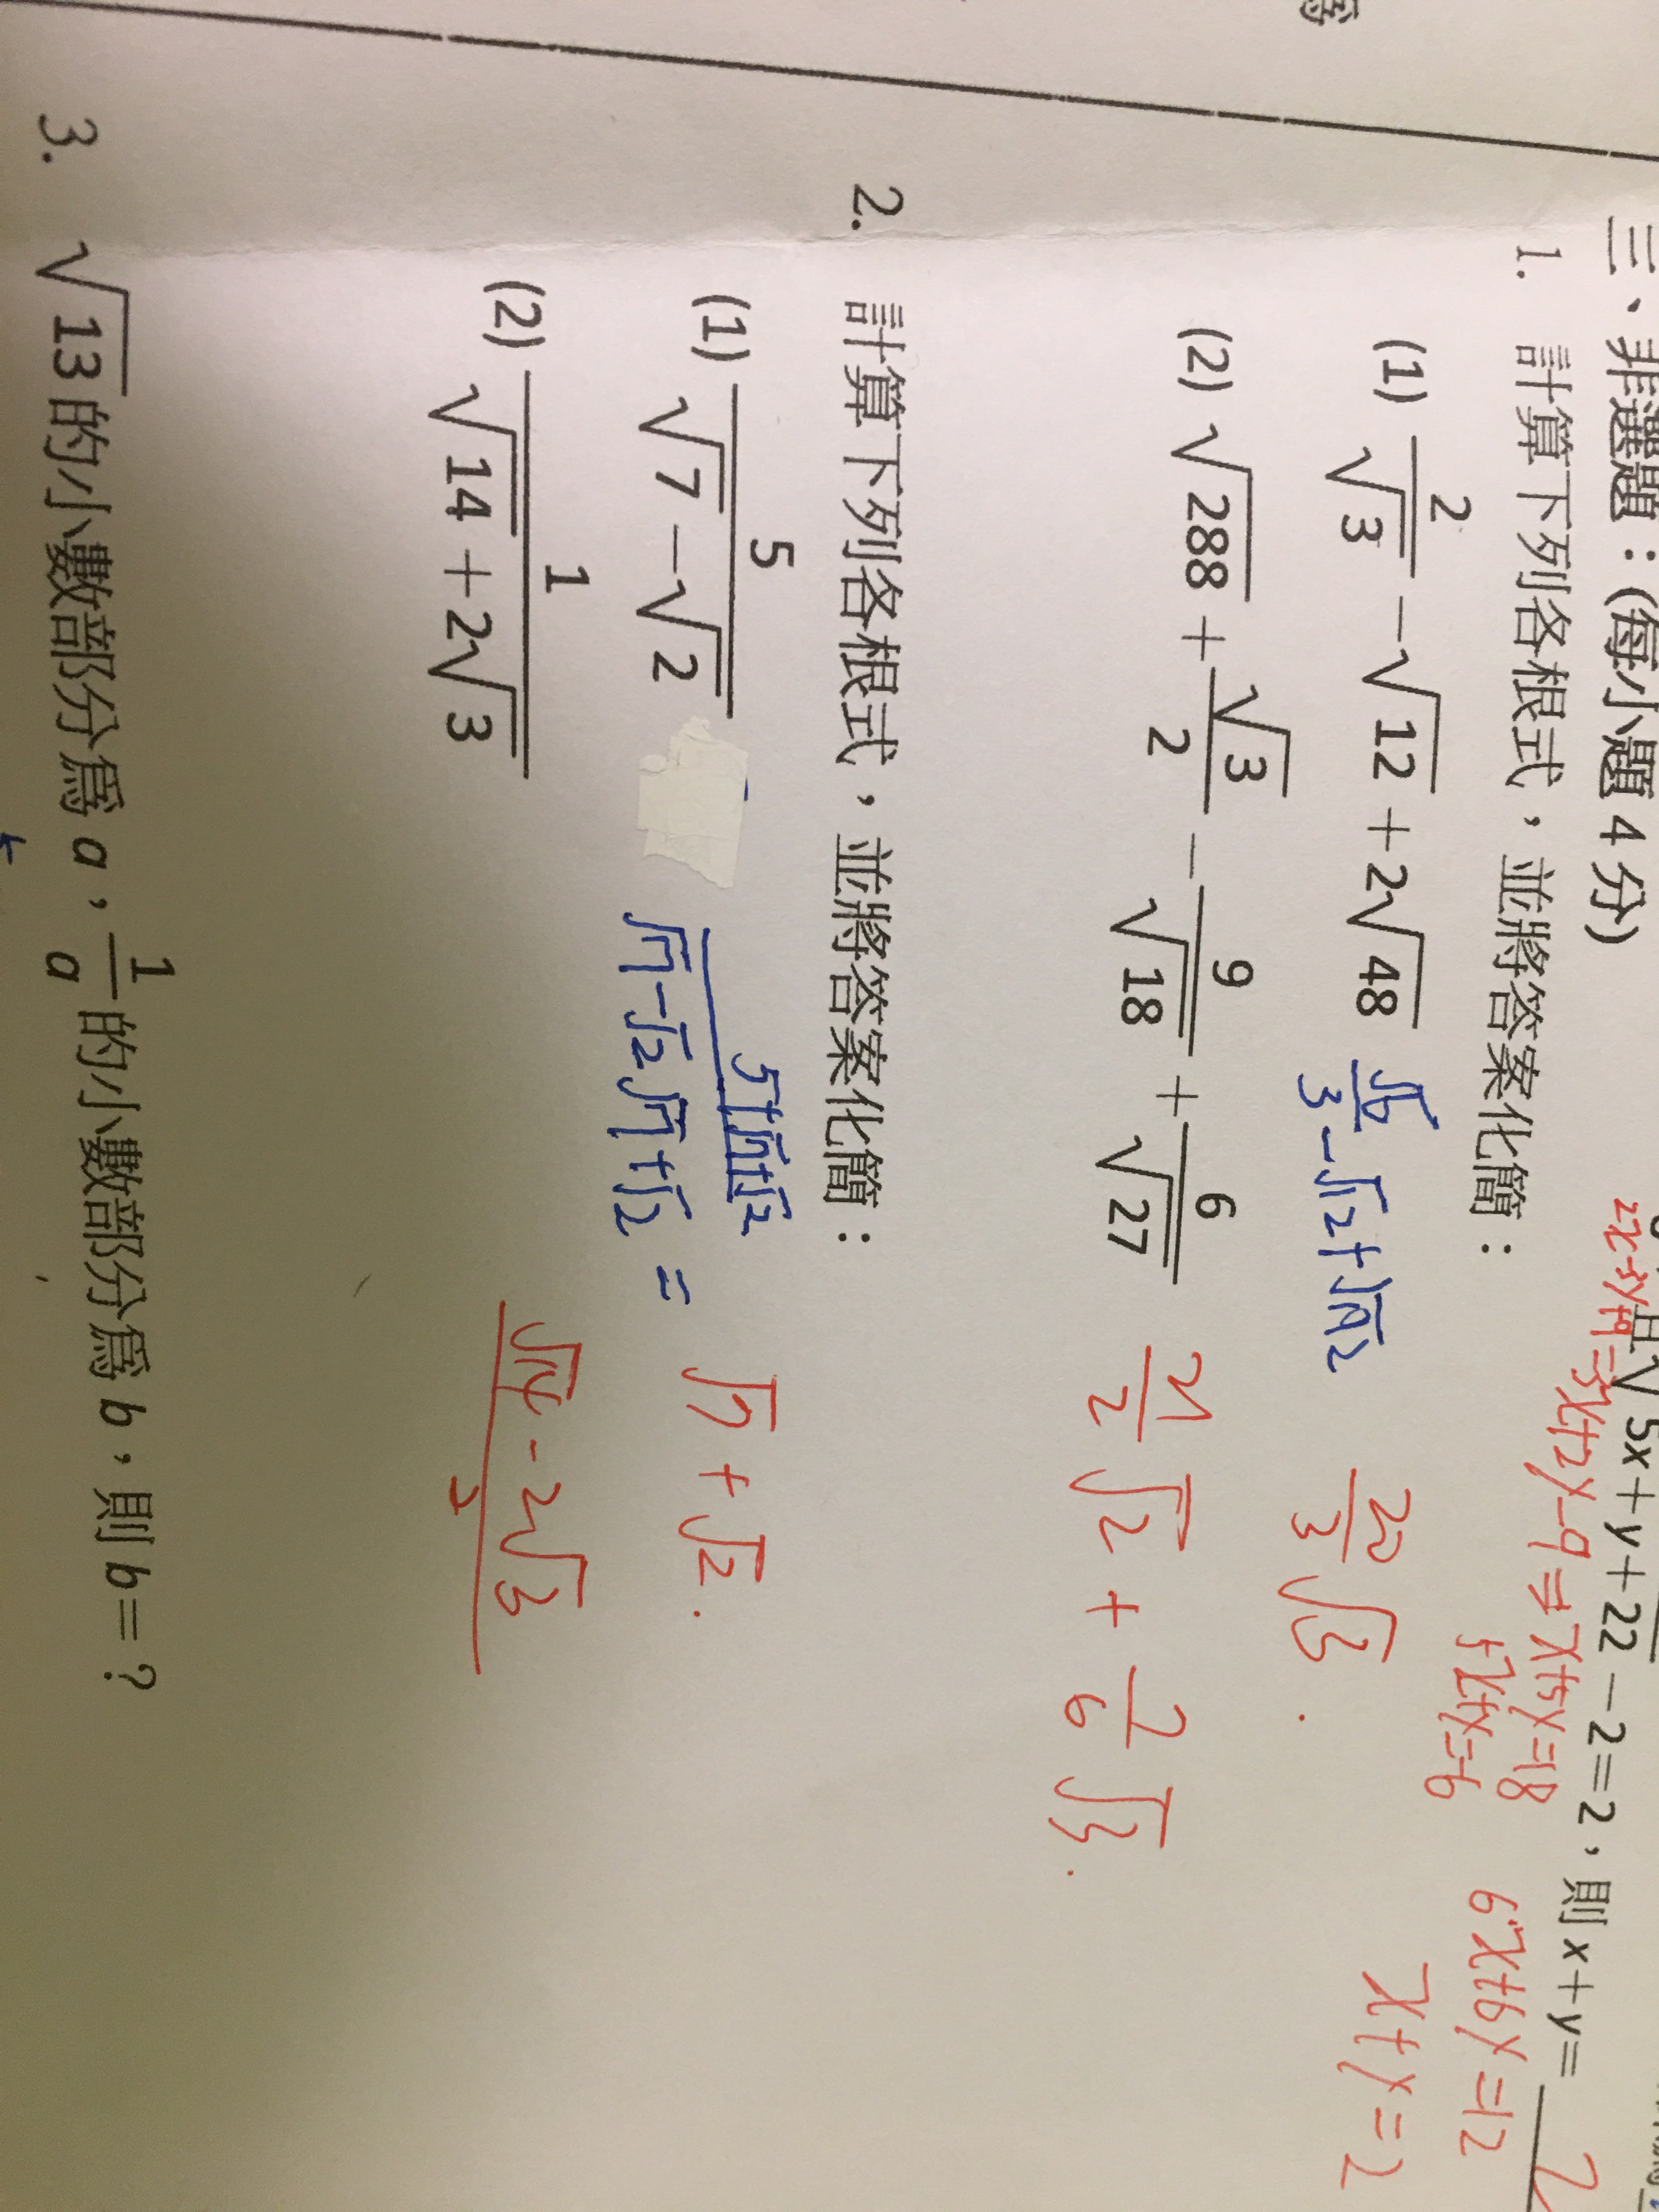 且√5x+y+22−2=2，則x+y= 2
2x-3y+9=3x+2y-9 ⇒ x+5y=18
5x+y=-6
6x+6y=12
x+y=2
三、非選題：(每小題 4 分)
1. 計算下列各根式，並將答案化簡：
(1) 2/√3 − √12 + 2√48 √6/3 - √12 + √192 20/3 √3.
(2) √288 + √3/2 − 9/√18 + 6/√27 21/2 √2 + 7/6 √3.
2. 計算下列各根式，並將答案化簡：
(1) 5/(√7−√2) 5+√7+√2/√7-√2√7+√2 = √7+√2.
(2) 1/(√14+2√3) √14-2√3/2
3. √13的小數部分為 a，1/a的小數部分為 b，則 b=？